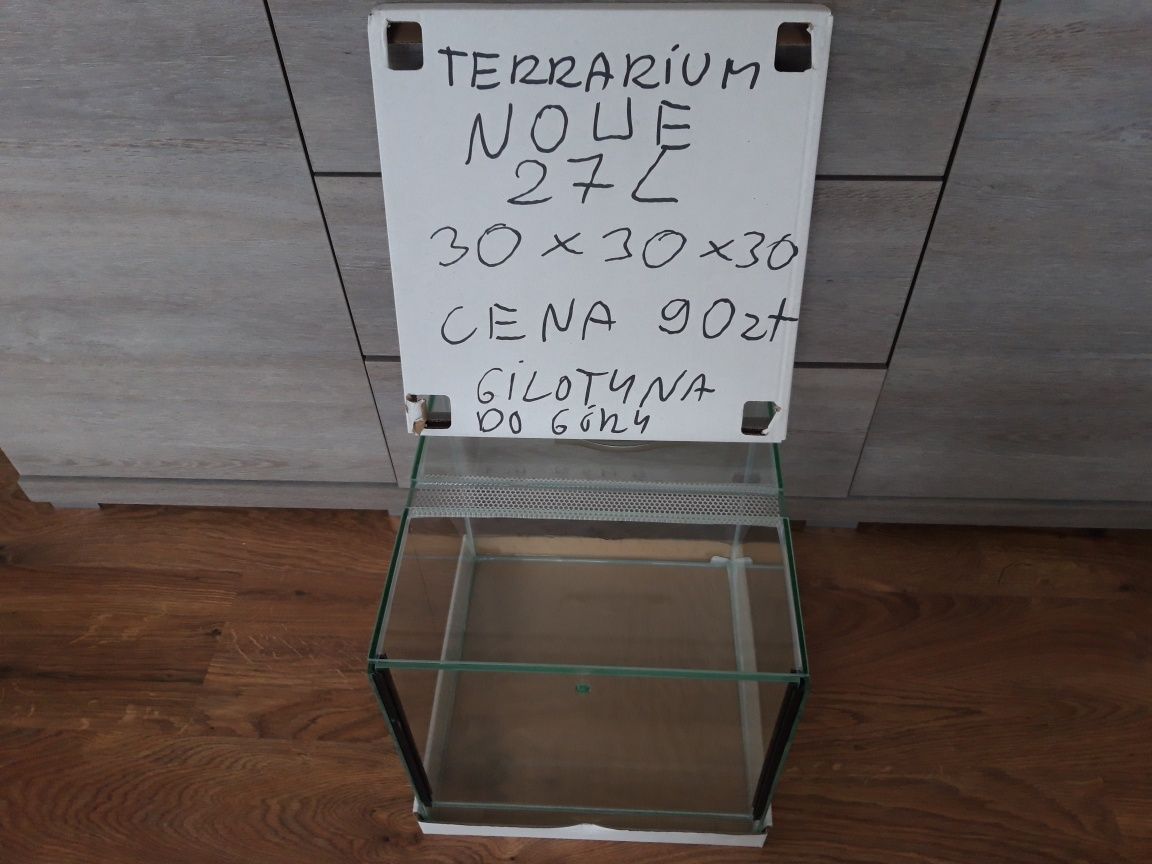 TERRARiUM
NOWE
27L
30 x 30 x 30
CENA 90zł
GiLOTYNA
DO GÓRY